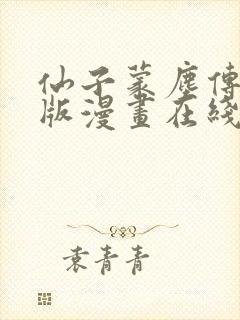 仙子蒙塵傳
版漫畫在綫
袁青青